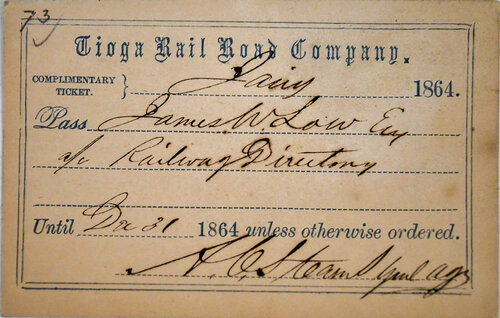 73
Tioga Rail Road Company.
COMPLIMENTARY TICKET. } 1864.
Pass James W. Low Esq
a/c Railway Directory
Until Dec 31 1864 unless otherwise ordered.
A. C. Stearns